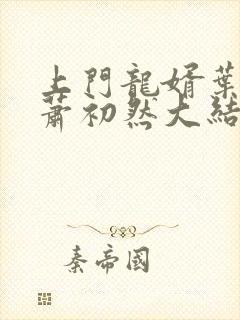 上門龍婿葉
蕭初然大結
秦帝國